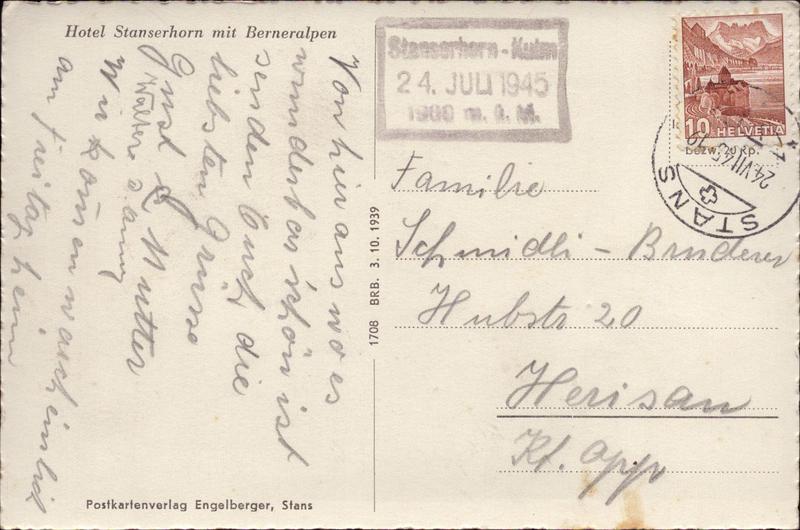 Hotel Stanserhorn mit Berneralpen
Von hier aus wo es
wunderbar schön ist
senden Euch die
liebsten Grüsse
Gust & Mutter
Walter
Wir komen warscheinlich
am Freitag heim
Postkartenverlag Engelberger, Stans
1708 BRB. 3. 10. 1939
Stanserhorn - Kulm
24. JULI 1945
1900 m. ü. M.
10 HELVETIA
bezw. 20 Rp.
STANS
24.VII.45
Familie
Schmidli - Bruderer
Hubstr 20
Herisau
Kt. App